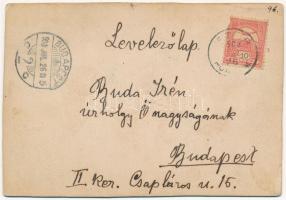 96.
Levelezőlap.
Buda Irén
úrhölgy Ő nagyságának
Budapest
II ker. Csapláros u. 15.
BUDAPEST